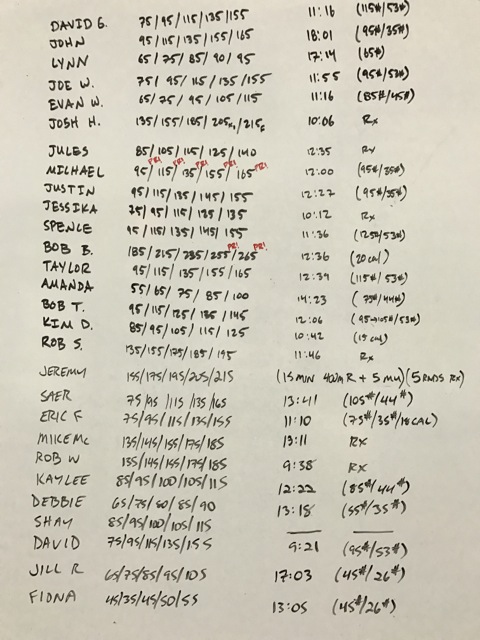 DAVID G. 75/95/115/135/155 11:16 (115#/53#)
JOHN 95/115/135/155/165 18:01 (95#/35#)
LYNN 65/75/85/90/95 17:14 (65#)
JOE W. 75/95/115/135/155 11:55 (95#/53#)
EVAN W. 65/75/95/105/115 11:16 (85#/45#)
JOSH H. 135/155/185/205/215 10:06 Rx
JULES 85/105/115/125/140 12:35 Rx
PR! PR! PR! PR! PR!
MICHAEL 95/115/135/155/165 12:00 (95#/35#)
JUSTIN 95/115/135/145/155 12:27 (95#/35#)
JESSIKA 75/95/115/125/135 10:12 Rx
SPENCE 95/115/135/145/155 11:36 (125#/53#)
PR! PR!
BOB B. 185/215/235/255/265 12:36 (20 cal)
TAYLOR 95/115/135/155/165 12:39 (115#/53#)
AMANDA 55/65/75/85/100 14:23 (75#/44#)
BOB T. 95/115/125/135/145 12:06 (95→105#/53#)
KIM D. 85/95/105/115/125 10:42 (15 cal)
ROB S. 135/155/175/185/195 11:46 Rx
JEREMY 155/175/195/205/215 (15 MIN 400M R + 5 MU) (5 RNDS RX)
SAER 75/95/115/135/165 13:41 (105#/44#)
ERIC F 75/95/115/135/155 11:10 (75#/35#/18CAL)
MIKE MC 135/145/155/175/185 13:11 RX
ROB W 135/145/155/175/185 9:38 RX
KAYLEE 85/95/100/105/115 12:22 (85#/44#)
DEBBIE 65/75/80/85/90 13:18 (55#/35#)
SHAY 85/95/100/105/115 —
DAVID 75/95/115/135/155 9:21 (95#/53#)
JILL R 65/75/85/95/105 17:03 (45#/26#)
FIONA 45/35/45/50/55 13:05 (45#/26#)